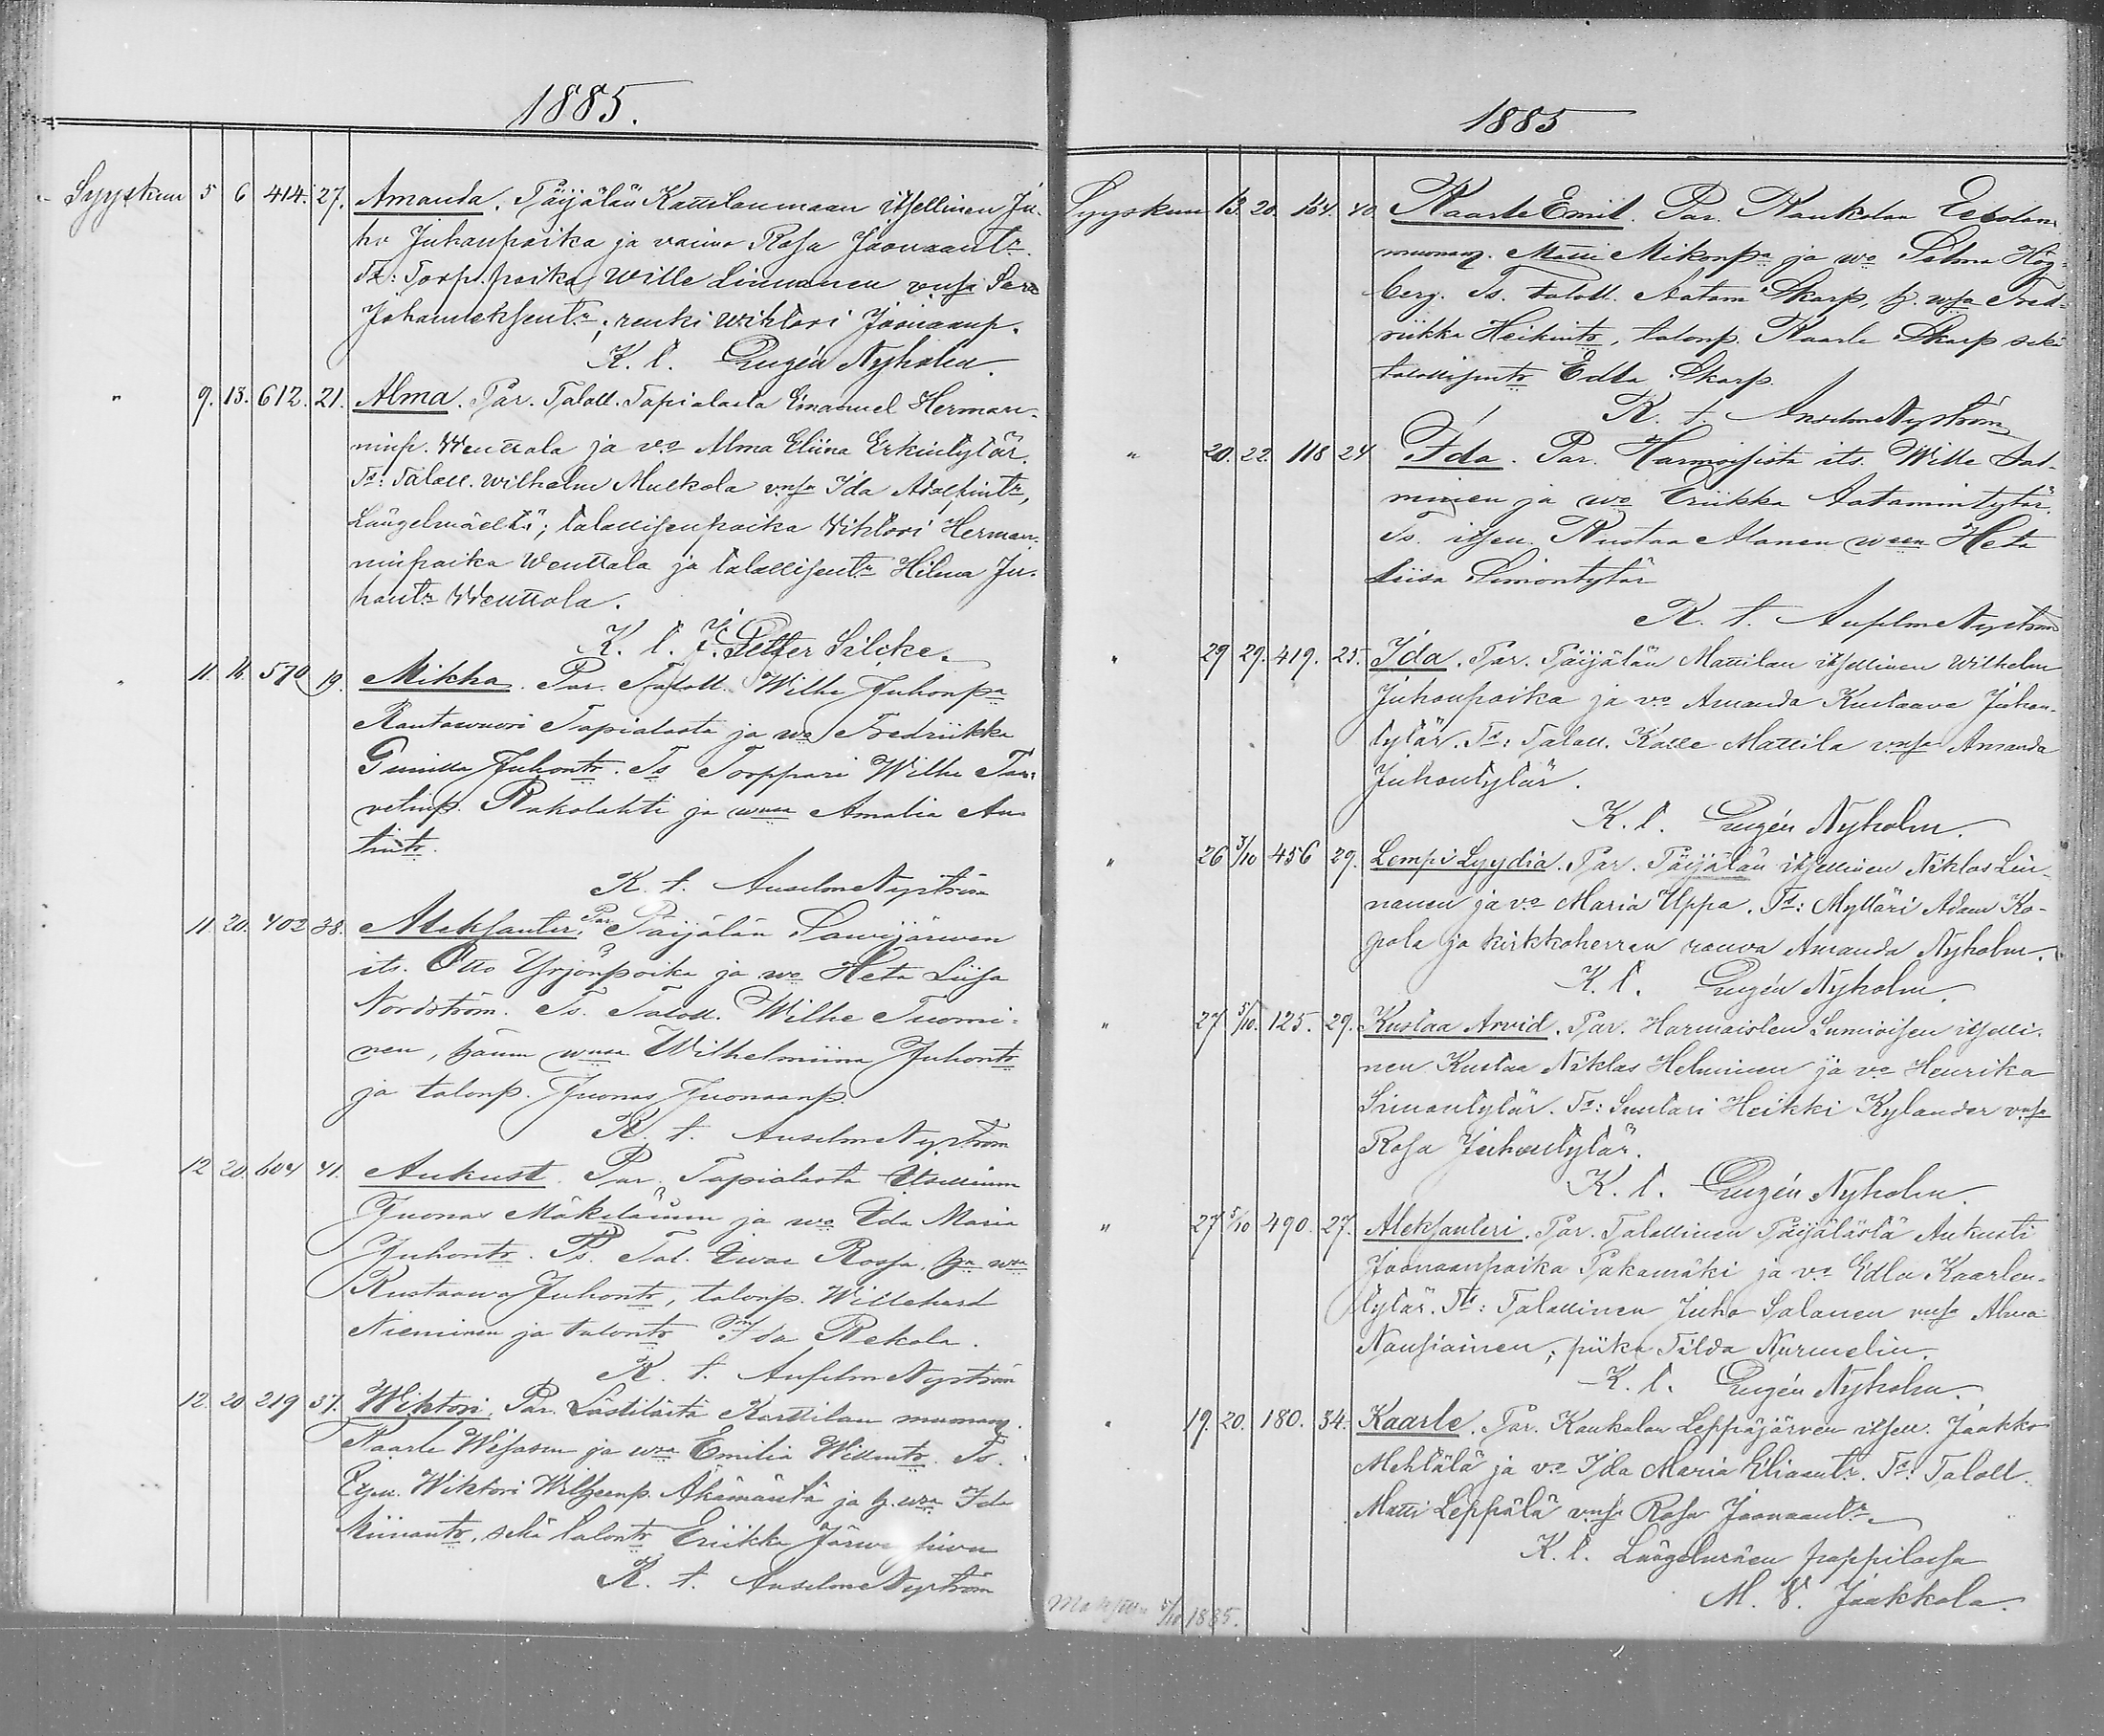 1885.
Syyskuu 5 6 414. 27. Amanda. Päijälän Kattilanmaan itsellinen Ju-
ho Juhanpoika ja vaimo Rosa Joonaantr.
Ts: Torp.poika Wille Linnanen vnsa Sera
Johanneksentr; renki Wiktori Joonaanp.
K. t. Eugén Nyholm.
" 9. 13. 612. 21. Alma. Par. Taloll. Tapialasta Emanuel Herman-
ninp. Wenttala ja vo Alma Eliina Erkintytär.
Ts: Taloll. Wilhelm Mulkola vnsa Ida Adolfintr,
Längelmäeltä; talollisenpoika Viktori Herman-
ninpoika Wenttala ja talollisentr Hilma Ju-
hontr Wenttola.
K. t. J. Petter Silcke.
" 11. 14. 570 19. Mikka. Par. Taloll. Wilhe Juhonpa
Rantawuori Tapialasta ja wo Fredriikka
Gunilla Juhontr. Ts Torppari Wilhe Taa-
vetinp. Pakolahti ja wnsa Amalia An-
tintr.
K. t. Anselm Nyström
11. 20. 402 38. Aleksanter. Par. Päijälän Sawijärwen
its. Otto Yrjönpoika ja wo Heta Liisa
Nordström. Ts. Taloll. Wilhe Tuomi-
nen, hänen wnsa Wilhelmiina Juhontr
ja talonp. Juonas Juonaanp.
K. t. Anselm Nyström
12 20. 604 41. Aukust. Par. Tapialasta Itsellinen
Juonas Mäkeläinen ja wo Ida Maria
Juhontr. Ts. Tal. Iwar Rossa, hn wna
Kustaawa Juhontr, talonp. Willehard
Nieminen ja talontr Ida Rekola.
K. t. Anselm Nyström
12. 20 219 37. Wiktori. Par. Lästilästä Karttilan muonam.
Kaarle Wesasen ja wna Emilia Willentr. Ts.
Wiktori Akämäntä ja h. wna Ida
Miinantr, sekä talontr Eriikka
K. t. Anselm Nyström
1885
Syyskuu 13. 20. 164. 40. Kaarle Emil. Par. Kaukolan Eerolan
muonam. Matti Mikonpa ja wo Selma Hög-
berg. Ts. taloll. Aatam Skarp, h. wsa Fred-
riikka Heikintr, talonp. Kaarle Skarp sekä
talollisentr Edla Skarp.
K. t. Anselm Nyström
" 20. 22. 118 24 Ida. Par. Harmoisista its. Wille Sal-
minen ja wo Eriikka Aatamintytär.
Ts. itsen. Kustaa Alanen wnsa Heta
Liisa Simontytär
K. t. Anselm Nyström
" 29 29. 419. 25. Ida. Par. Päijälän Mattilan itsellinen Wilhelm
Juhonpoika ja vo Amanda Kustaava Juhon-
tytär. Ts: Taloll. Kalle Mattila vnsa Amanda
Juhontytär.
K. t. Eugén Nyholm.
" 26 3/10 456 29. Lempi Lyydia. Par. Päijälän itsellinen Niklas Lin-
nanen ja vo Maria Uppa. Ts: Mylläri Adam Ko-
pola ja kirkkoherran rouva Amanda Nyholm.
K. t. Eugén Nyholm.
" 27 5/10. 125. 29. Kustaa Arvid. Par. Harmoisten Sumioisen itselli-
nen Kustaa Niklas Helminen ja vo Henrika
Simontytär. Ts: Suutari Heikki Kylander vnsa
Rosa Juhontytär.
K. t. Eugén Nyholm.
" 27 5/10 490. 27. Aleksanteri. Par. Talollinen Päijälästä Aukusti
Joonaanpoika Pakamäki ja vo Edla Kaarlen-
tytär. Ts: Talollinen Juho Salonen vnsa Alma
Naufiainen; piika Tilda Nurmelin.
K. t. Eugén Nyholm.
" 19. 20. 180. 34. Kaarle. Par. Kaukolan Leppäjärven itsell. Jaakko
Mehtälä ja vo Ida Maria Eliaantr. Ts: Taloll.
Matti Leppälä vnsa Rosa Joonaantr.
K. t. Längelmäen pappilassa
M. V. Jaakkola.
5/10 1885.